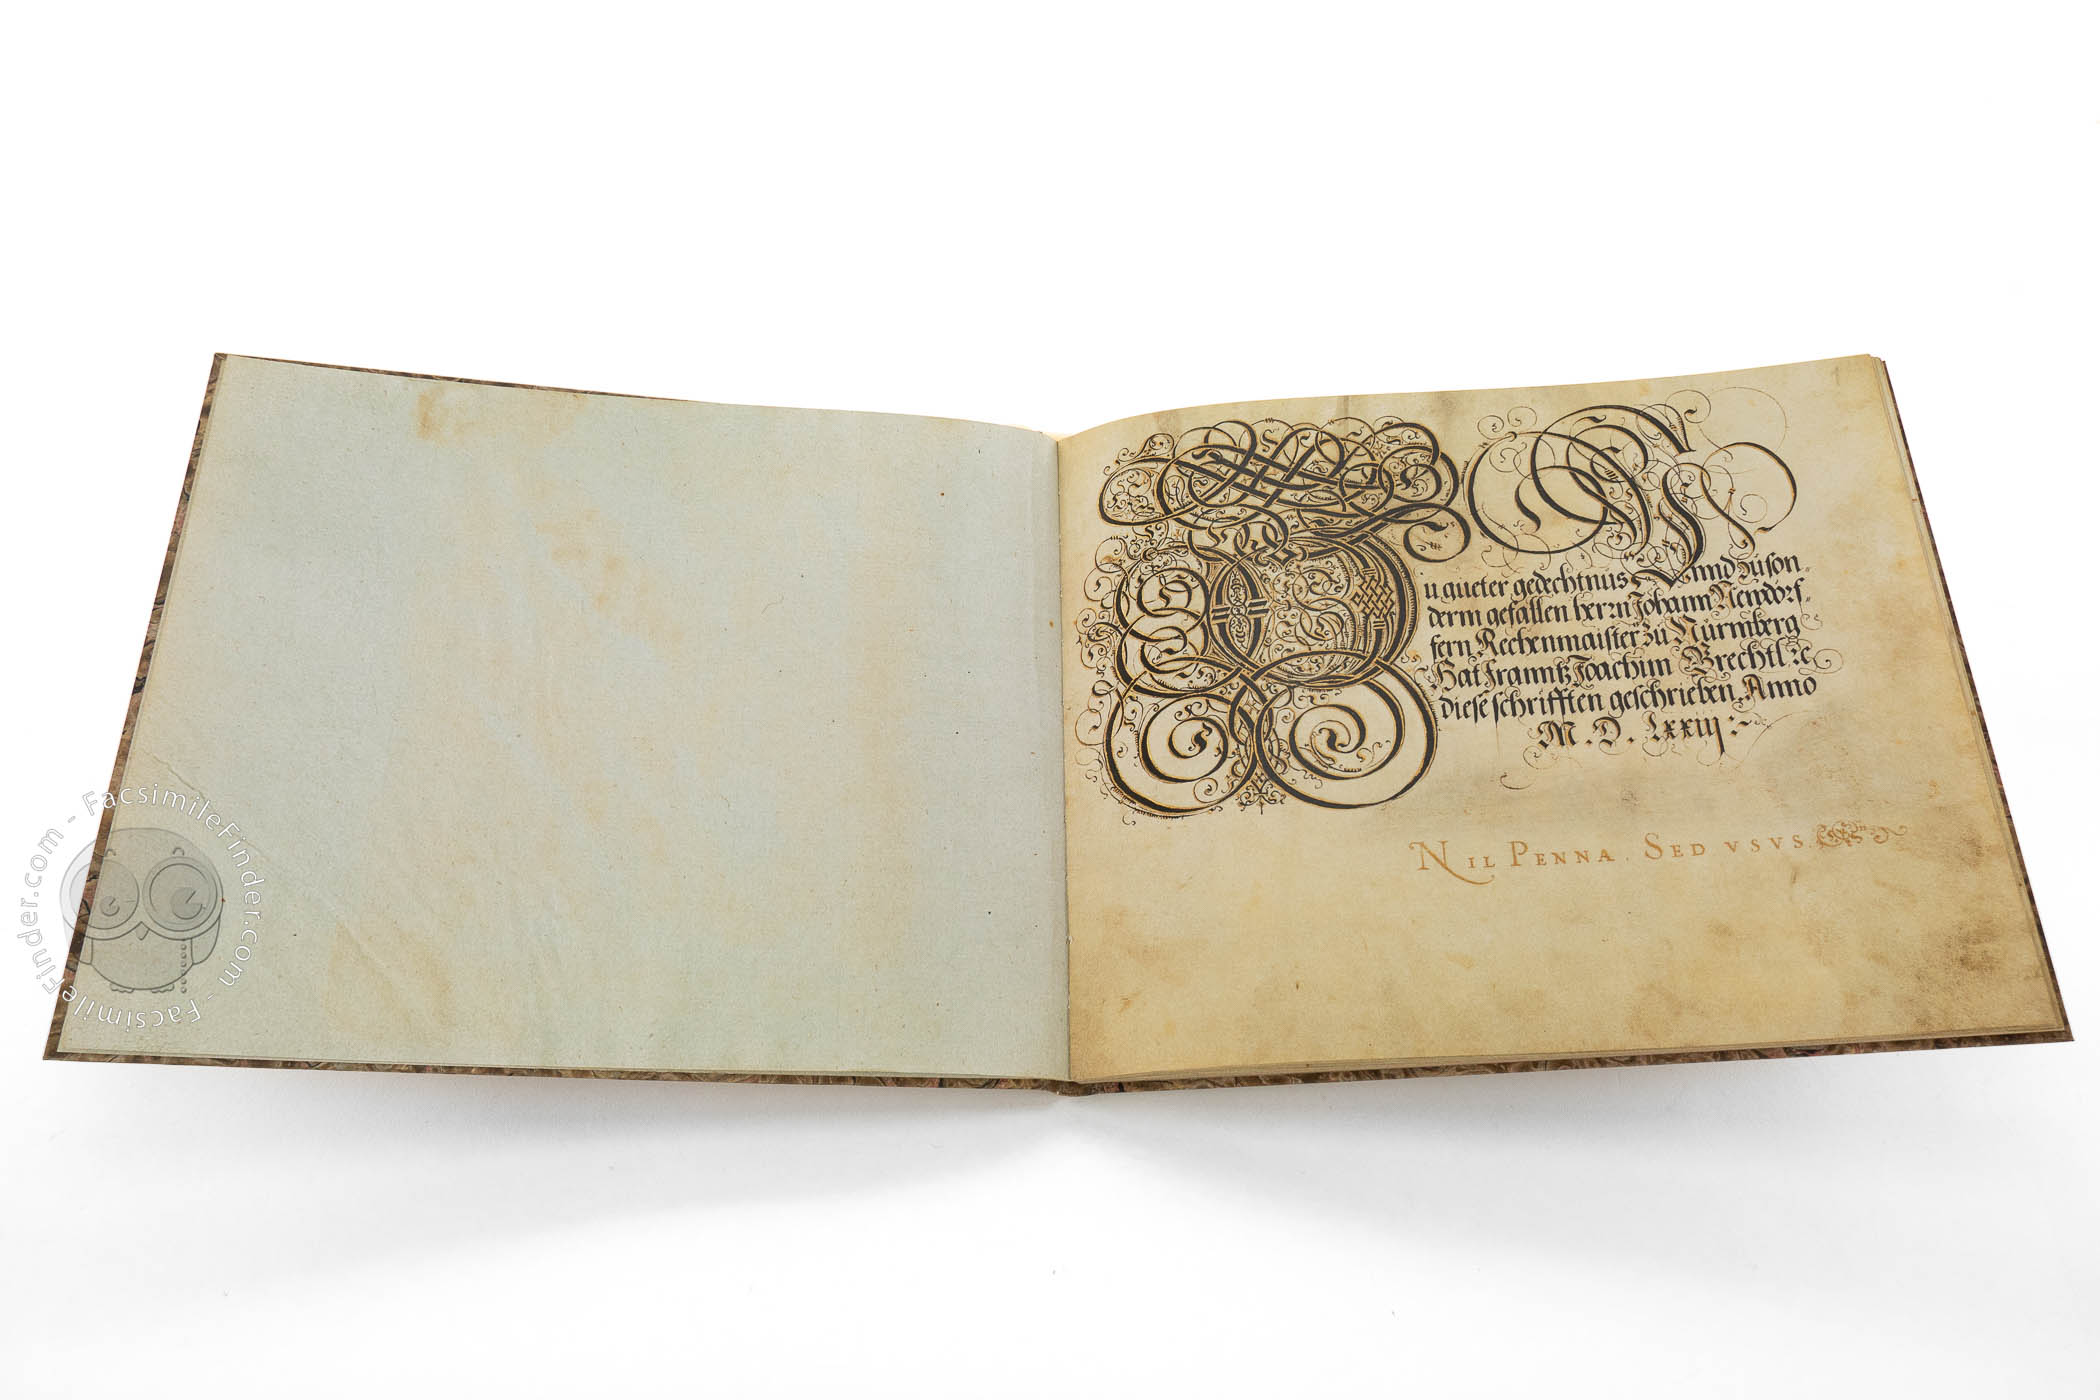 Zu gueter gedechtnus Vnnd zuson-
derm gefallen herrn Johann Newdorf-
fern Rechenmaister zu Nürmberg
Hat Franntz Joachim Brechtl ꝛc
diese schrifften geschrieben Anno
M. D. Lxxiij
NIL PENNA. SED VSVS.
FacsimileFinder.com - FacsimileFinder.com -